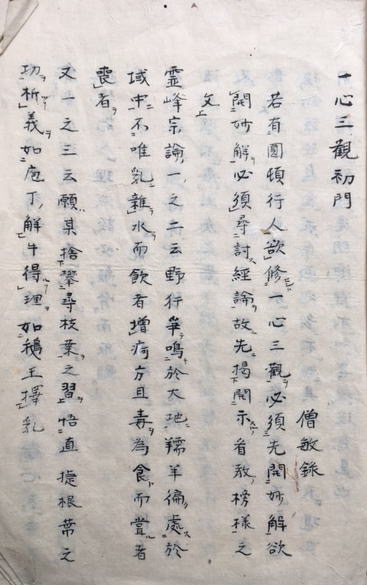 一心三觀初門
僧敏錄
若有圓頓行人欲修一心三觀必須先開妙解欲
開妙解必須尋討經論故先揭開示看教榜樣之
文
靈峰宗論一之二云野行爭鳴於大地羺羊偏處於
域中不唯乳雜水而飲者增病方且毒為食而嘗者
喪者
又一之三云願某捨攀尋枝葉之習悟直捷根蒂之
功析義如庖丁解牛得理如鵝王擇乳